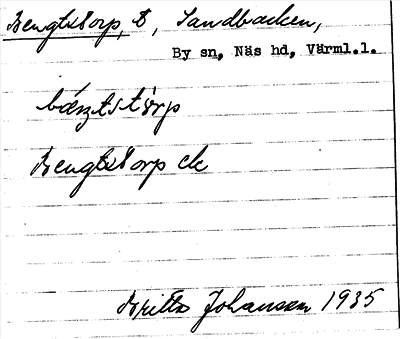 Bengtstorp, t, Sandbacken,
By sn, Näs hd, Värml.l.
Bengtstorp ck
Britta Johansson 1935